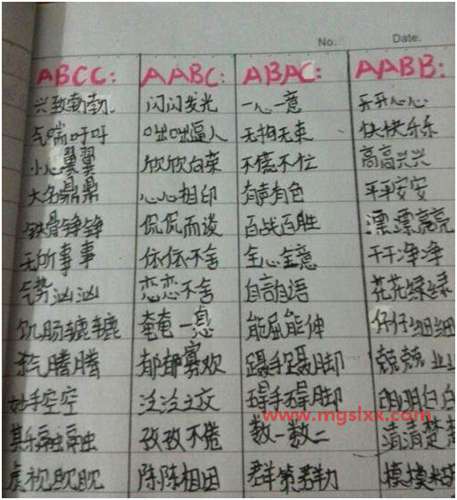 No.
Date.
ABCC: AABC: ABAC: AABB:
兴致勃勃 闪闪发光 一心一意 开开心心
气喘吁吁 咄咄逼人 无拘无束 快快乐乐
小心翼翼 欣欣向荣 不慌不忙 高高兴兴
大名鼎鼎 心心相印 有声有色 平平安安
铁骨铮铮 侃侃而谈 百战百胜 漂漂亮亮
无所事事 依依不舍 全心全意 干干净净
气势汹汹 恋恋不舍 自言自语 花花绿绿
饥肠辘辘 奄奄一息 能屈能伸 仔仔细细
杀气腾腾 郁郁寡欢 蹑手蹑脚 兢兢业业
妙手空空 泛泛之交 碍手碍脚 明明白白
www.mgslxx.com
其乐融融 孜孜不倦 数一数二 清清楚
虎视眈眈 陈陈相因 群策群力 模模糊